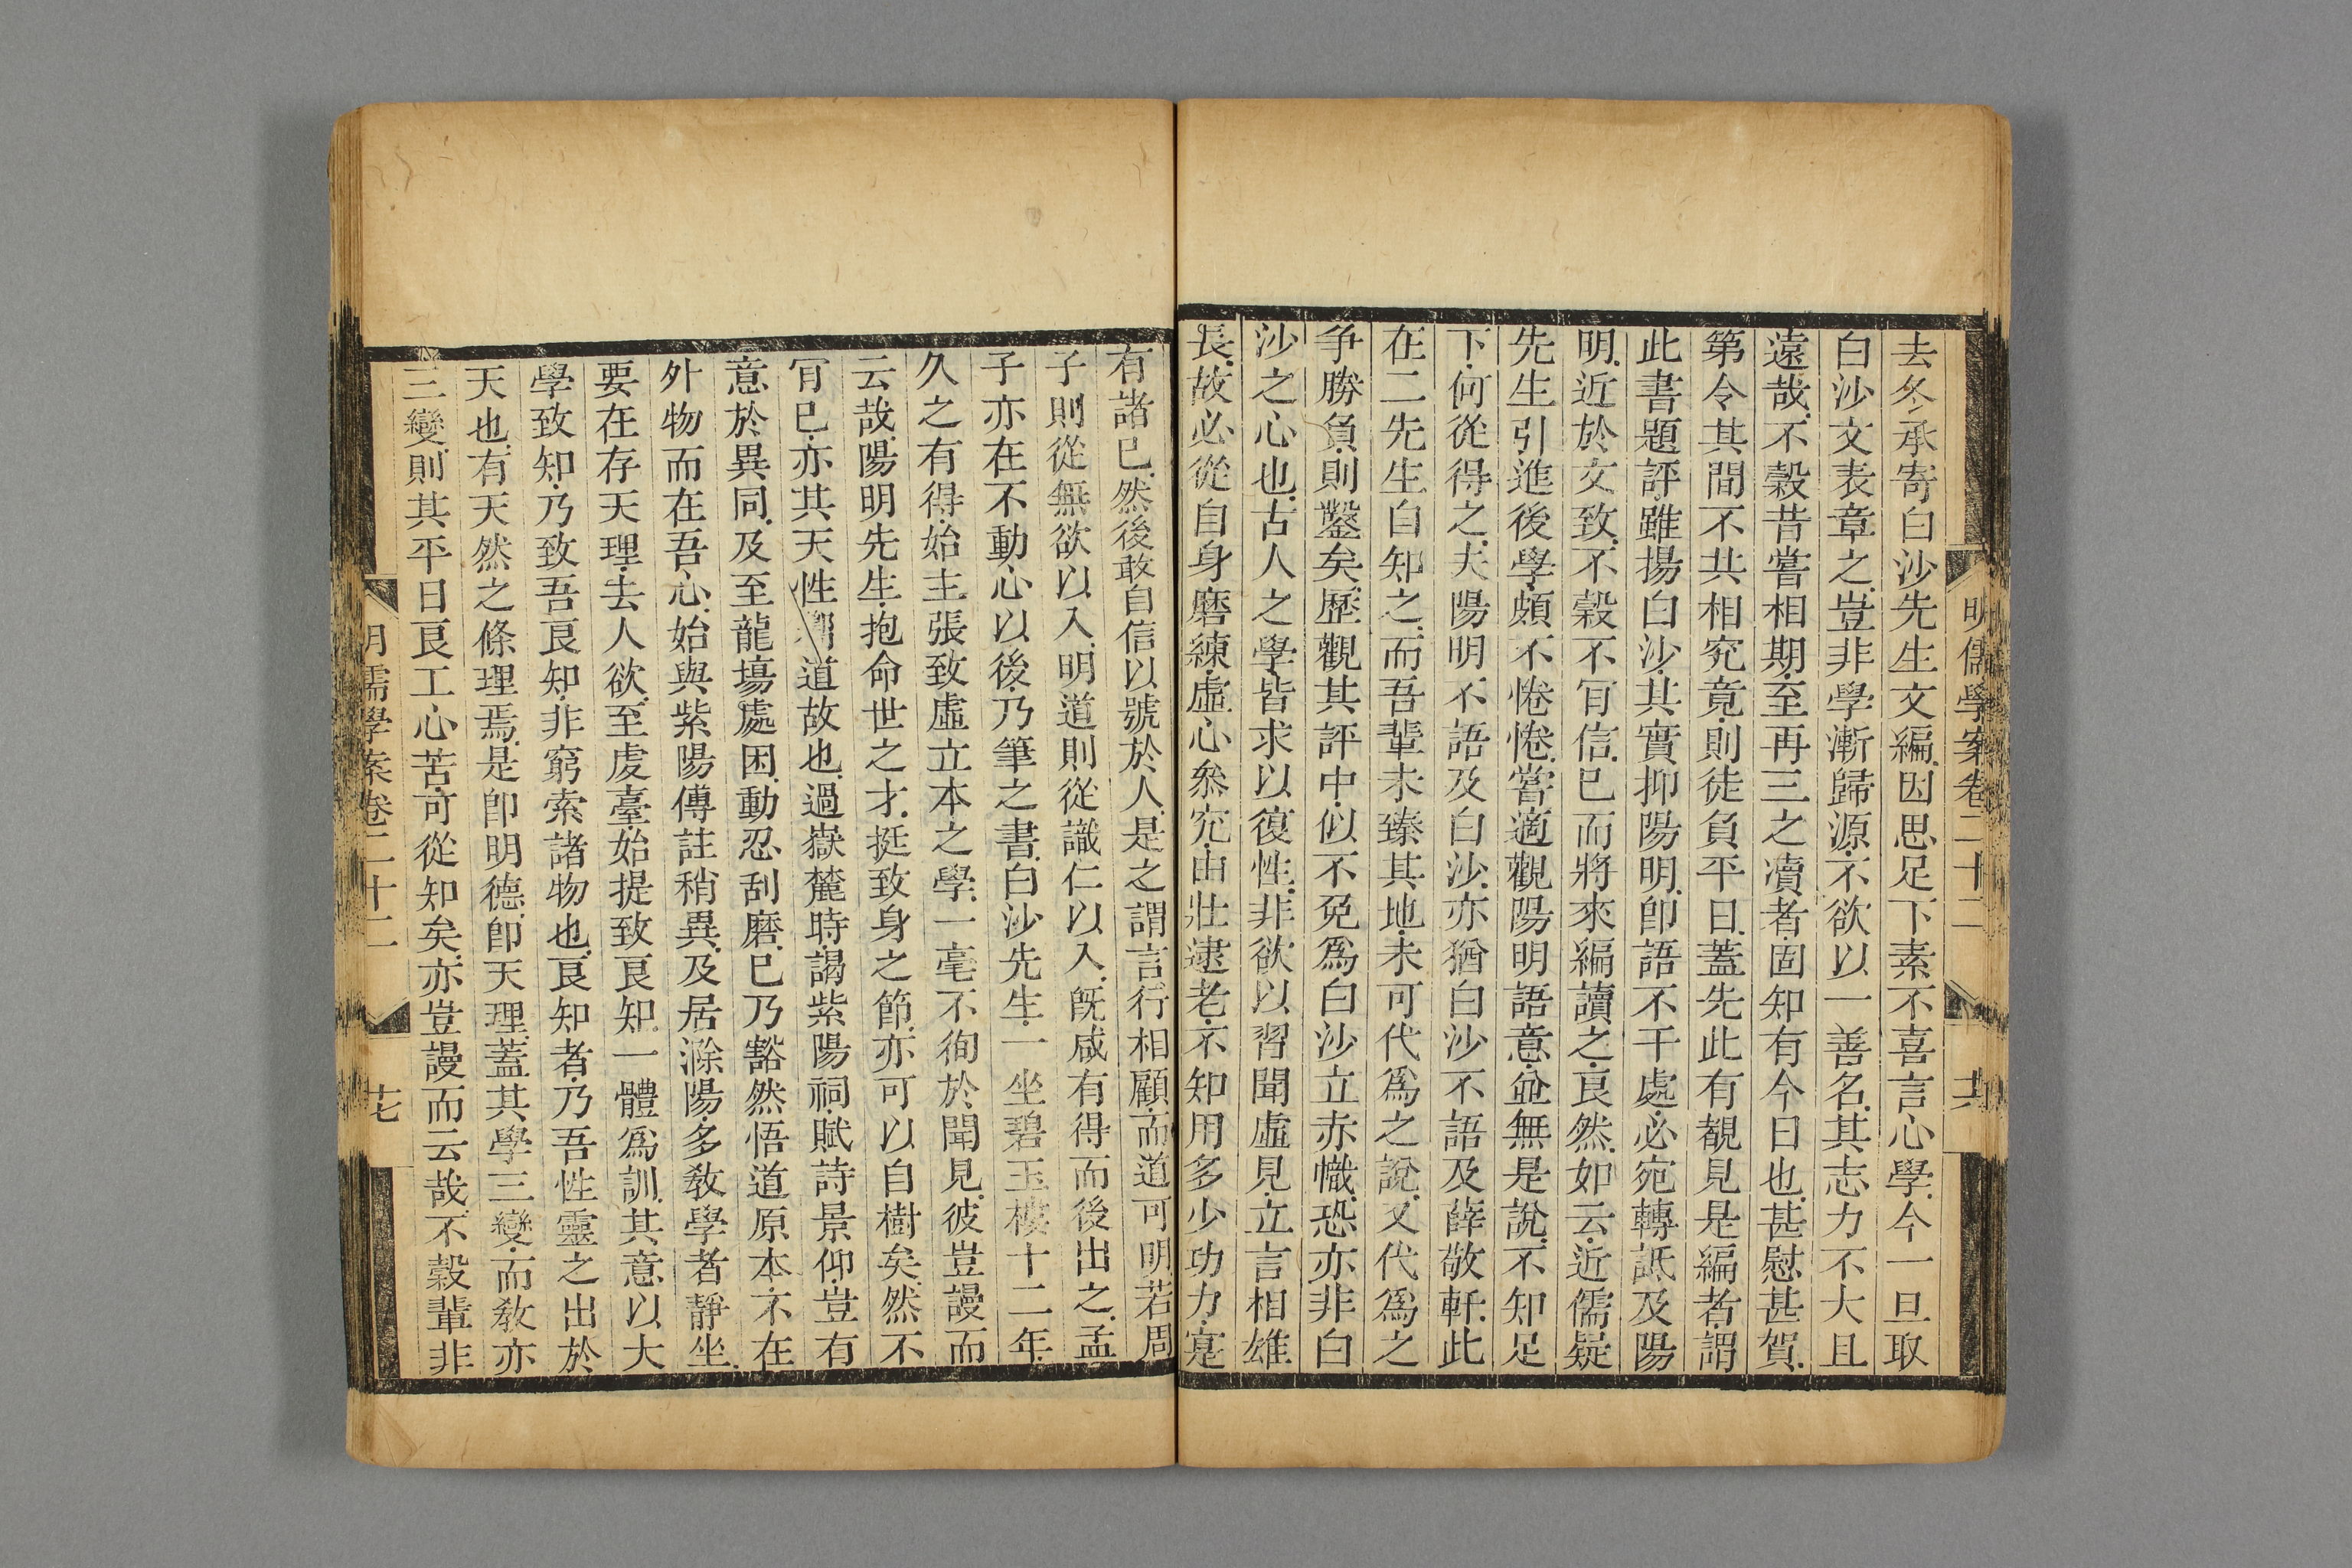 明儒學案卷二十二
去冬承寄白沙先生文編.因思足下素不喜言心學.今一旦取
白沙文表章之.豈非學漸歸源.不欲以一善名.其志力不大且
遠哉.不穀昔嘗相期.至再三之凟者.固知有今日也.甚慰甚賀.
第令其間不共相究竟.則徒負平日.蓋先此有覩見是編者.謂
此書題評.雖揚白沙.其實抑陽明.卽語不干處.必宛轉詆及陽
明.近於文致.不穀不肎信.已而將來編讀之.良然.如云.近儒疑
先生引進後學.頗不惓惓.嘗適觀陽明語意.竝無是說.不知足
下.何從得之.夫陽明不語及白沙.亦猶白沙不語及薛敬軒.此
在二先生自知之.而吾輩未臻其地.未可代爲之說.又代爲之
爭勝負.則鑿矣.歷觀其評中.似不免爲白沙立赤幟.恐亦非白
沙之心也.古人之學.皆求以復性.非欲以習聞虛見.立言相雄
長.故必從自身磨練.虛心參究.由壯逮老.不知用多少功力.寔
有諸已.然後敢自信以號於人.是之謂言行相顧.而道可明.若周
子則從無欲以入.明道則從識仁以入.旣咸有得而後出之.孟
子亦在不動心以後.乃筆之書.白沙先生.一坐碧玉樓十二年.
久之有得.始主張致虛立本之學.一毫不徇於聞見.彼豈謾而
云哉.陽明先生.抱命世之才.挺致身之節.亦可以自樹矣.然不
肎已.亦其天性道故也.過嶽麓時.謁紫陽祠.賦詩景仰.豈有
意於異同.及至龍塲處困.動忍刮磨.已乃豁然悟道原本.不在
外物而在吾心.始與紫陽傳註稍異.及居滁陽.多敎學者靜坐.
要在存天理.去人欲.至虔臺.始提致良知.一體爲訓.其意以大
學致知.乃致吾良知.非窮索諸物也.良知者.乃吾性靈之出於
天也.有天然之條理焉.是卽明德.卽天理.蓋其學三變.而敎亦
三變.則其平日良工心苦.可從知矣.亦豈謾而云哉.不穀輩非
明儒學案卷二十二